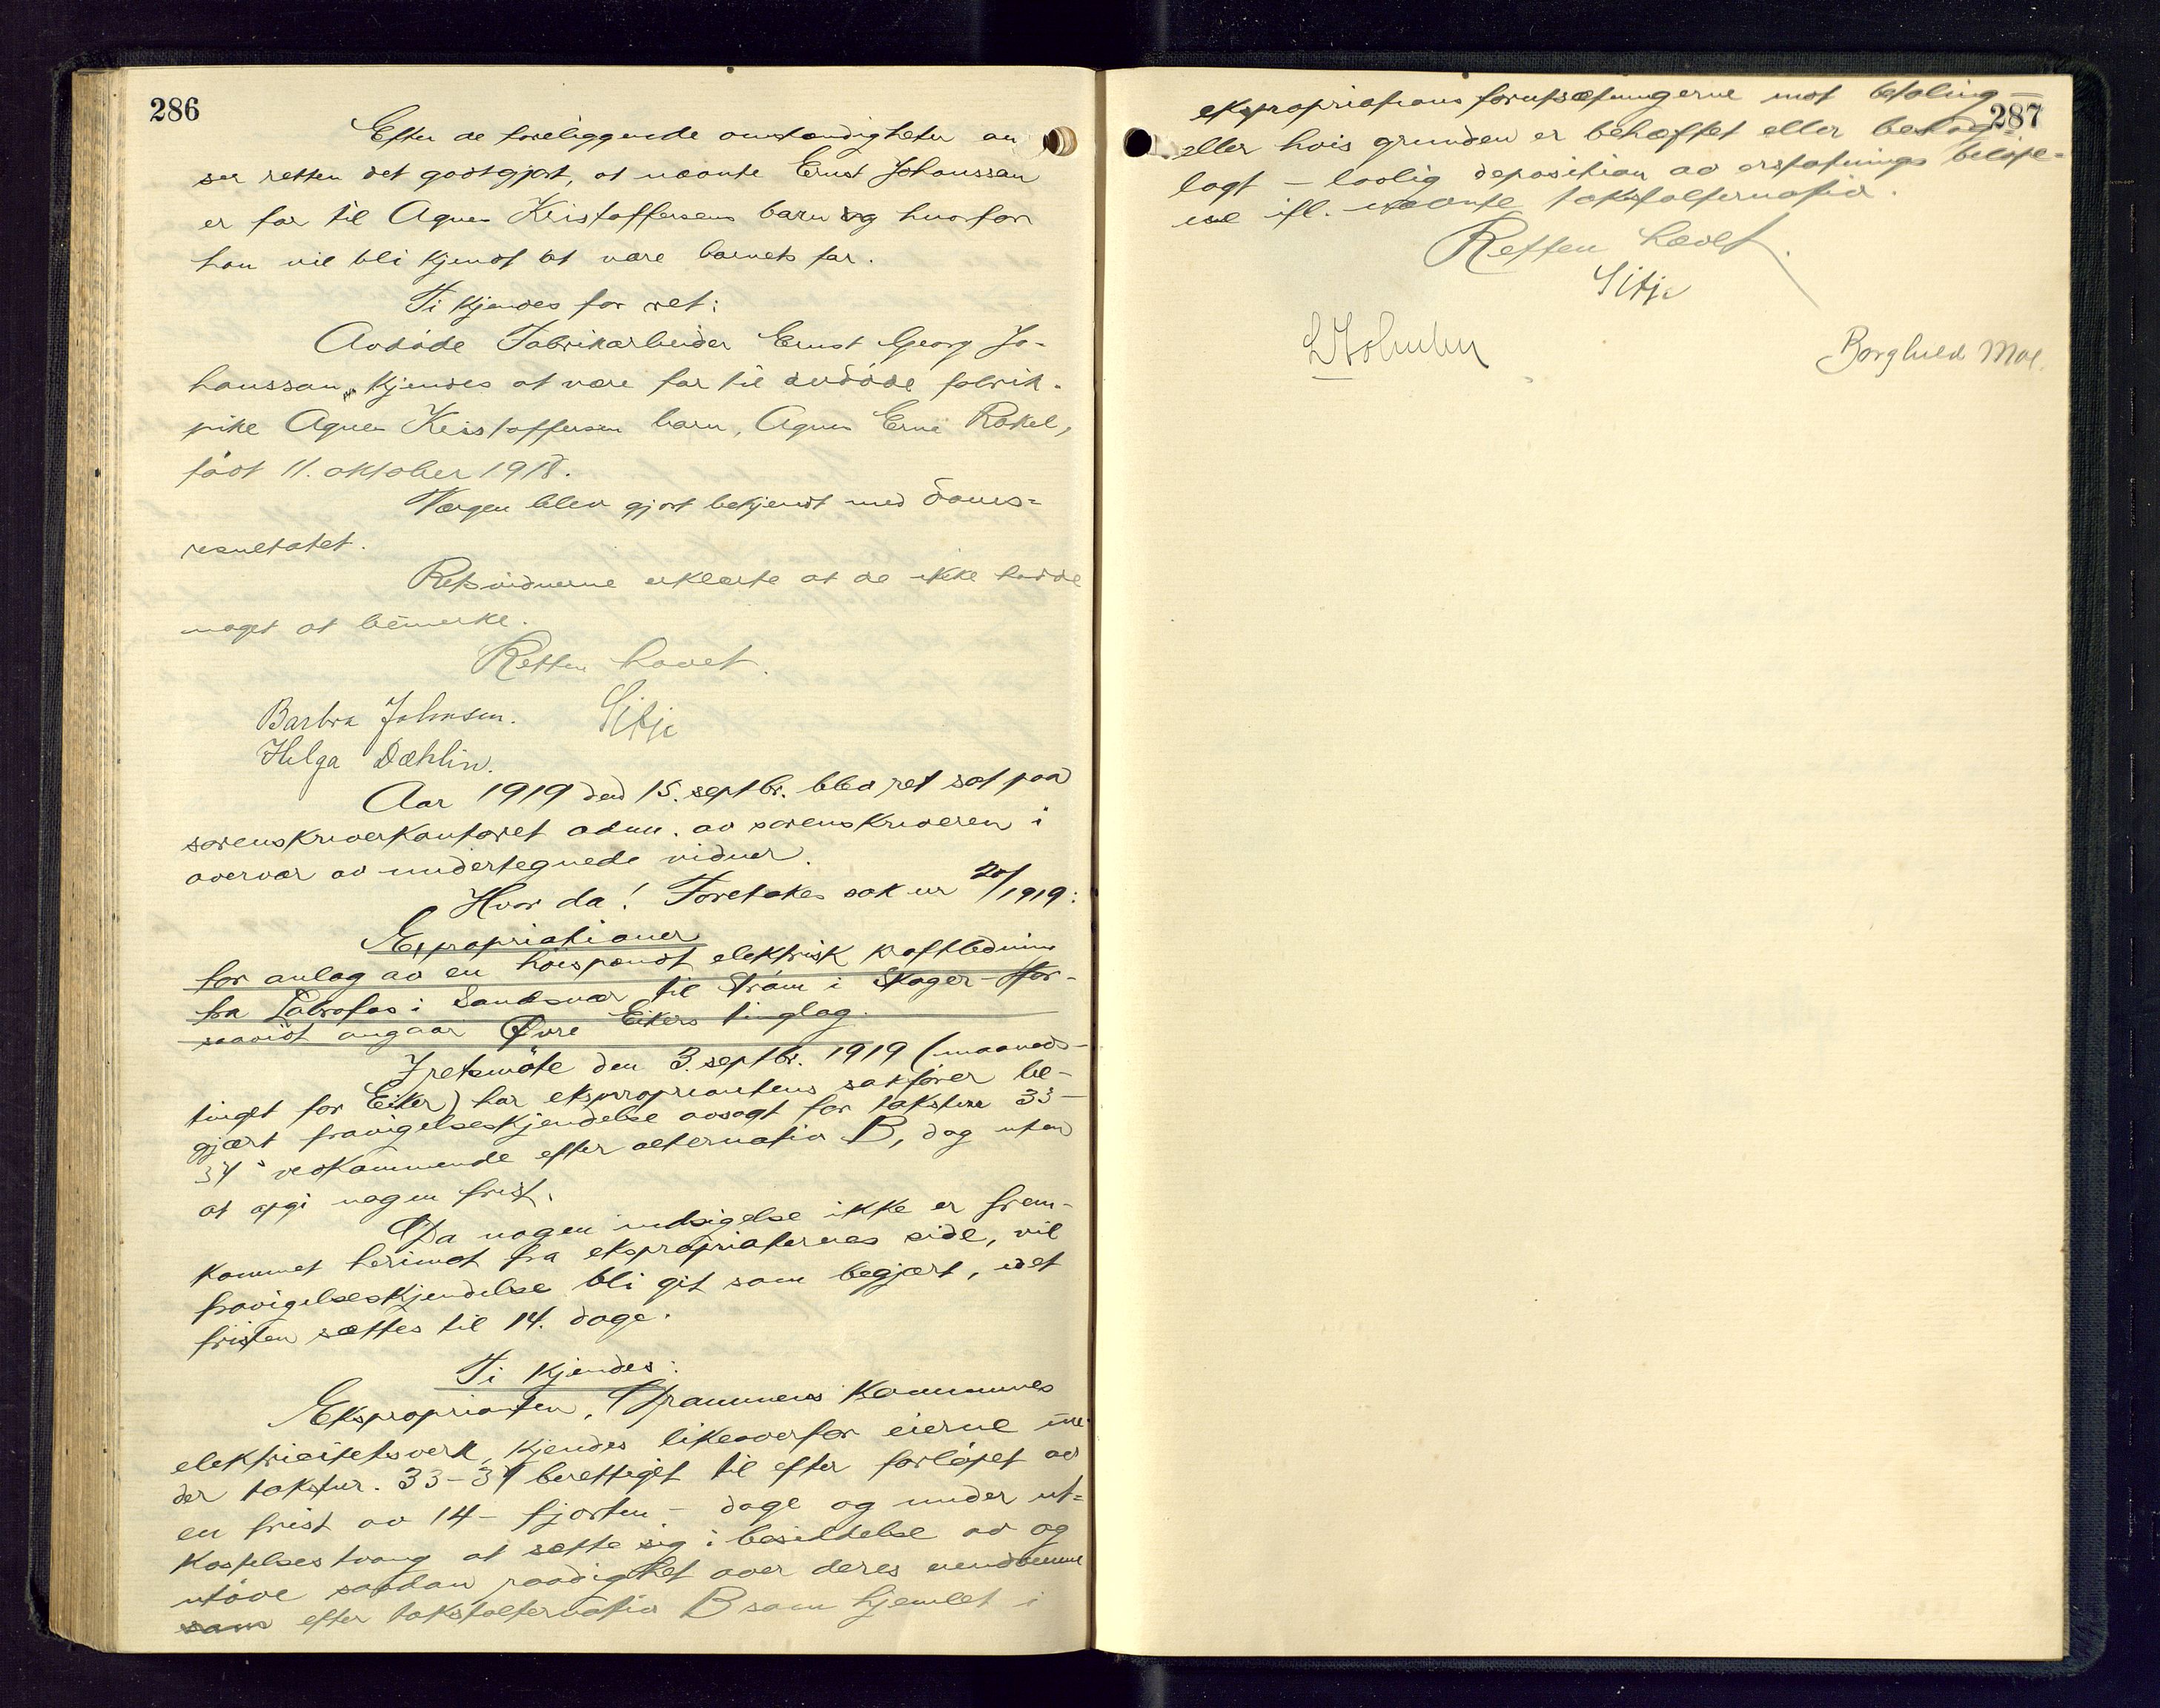 286
Efter de foreliggende omstændigheter an
ser retten det godtgjort, at nævnte Ernst Johanssan
er far til Agnes Kristoffersens barn og hvorfor
han vil bli kjendt at være barnets far.
Ti kjendes for ret:
Avdøde Fabrikarbeider Ernst Georg Jo-
hanssan kjendes at være far til avdøde fabrik-
pike Agnes Kristoffersen barn, Agnes Erna Rakel,
født 11. oktober 1918.
Værgen blev gjort bekjendt med doms=
resultatet.
Retsvidnerne erklærte at de ikke hadde
noget at bemerke.
Retten hævet.
Barbra Johnsen.
Helga Dæhlin.
Aar 1919 den 15. septbr. blev ret sat paa
sorenskriverkontoret adm. av sorenskriveren i
overvær av undertegnede vidner.
Hvor da! Foretokes sak nr 20/1919:
Expropriationer
for anlæg av en høispændt elektrisk kraftledning
fra Labrofos i Sandsvær til Strøm i Skoger - for-
saavidt angaar Øvre Eikers tinglag.
I retsmøte den 3. septbr. 1919 (maaneds-
tinget for Eiker) har ekspropriantens sakfører be-
gjært fravigelseskjendelse avsagt for takstnr 33-
34's vedkommende efter alternativ B, dog uten
at opgi nogen frist.
Da nogen indsigelse ikke er frem-
kommet herimot fra ekspropriaternes side, vil
fravigelseskjendelse bli git som begjært, idet
fristen sættes til 14. dage.
Ti kjendes:
Ekspropriantenn, Drammens Kommunes
elektricitetsverk, kjendes likeoverfor eierne un-
der takstnr. 33-34 berettiget til efter forløpet av
en frist av 14 - fjorten - dage og under ut=
kastelsestvang at sætte sig i besiddelse av og
utøve saadan raadighet over deres eiendomme
som efter takstalternativ B som hjemlet i
287
ekspropriationsforutsætningerne mot betaling -
eller hvis grunden er behæftet eller beslag=
lagt - lovlig deposition av erstatnings beløpe-
ne ifl. nævnte takstalternativ.
Retten hævet.
Borghild Moe.